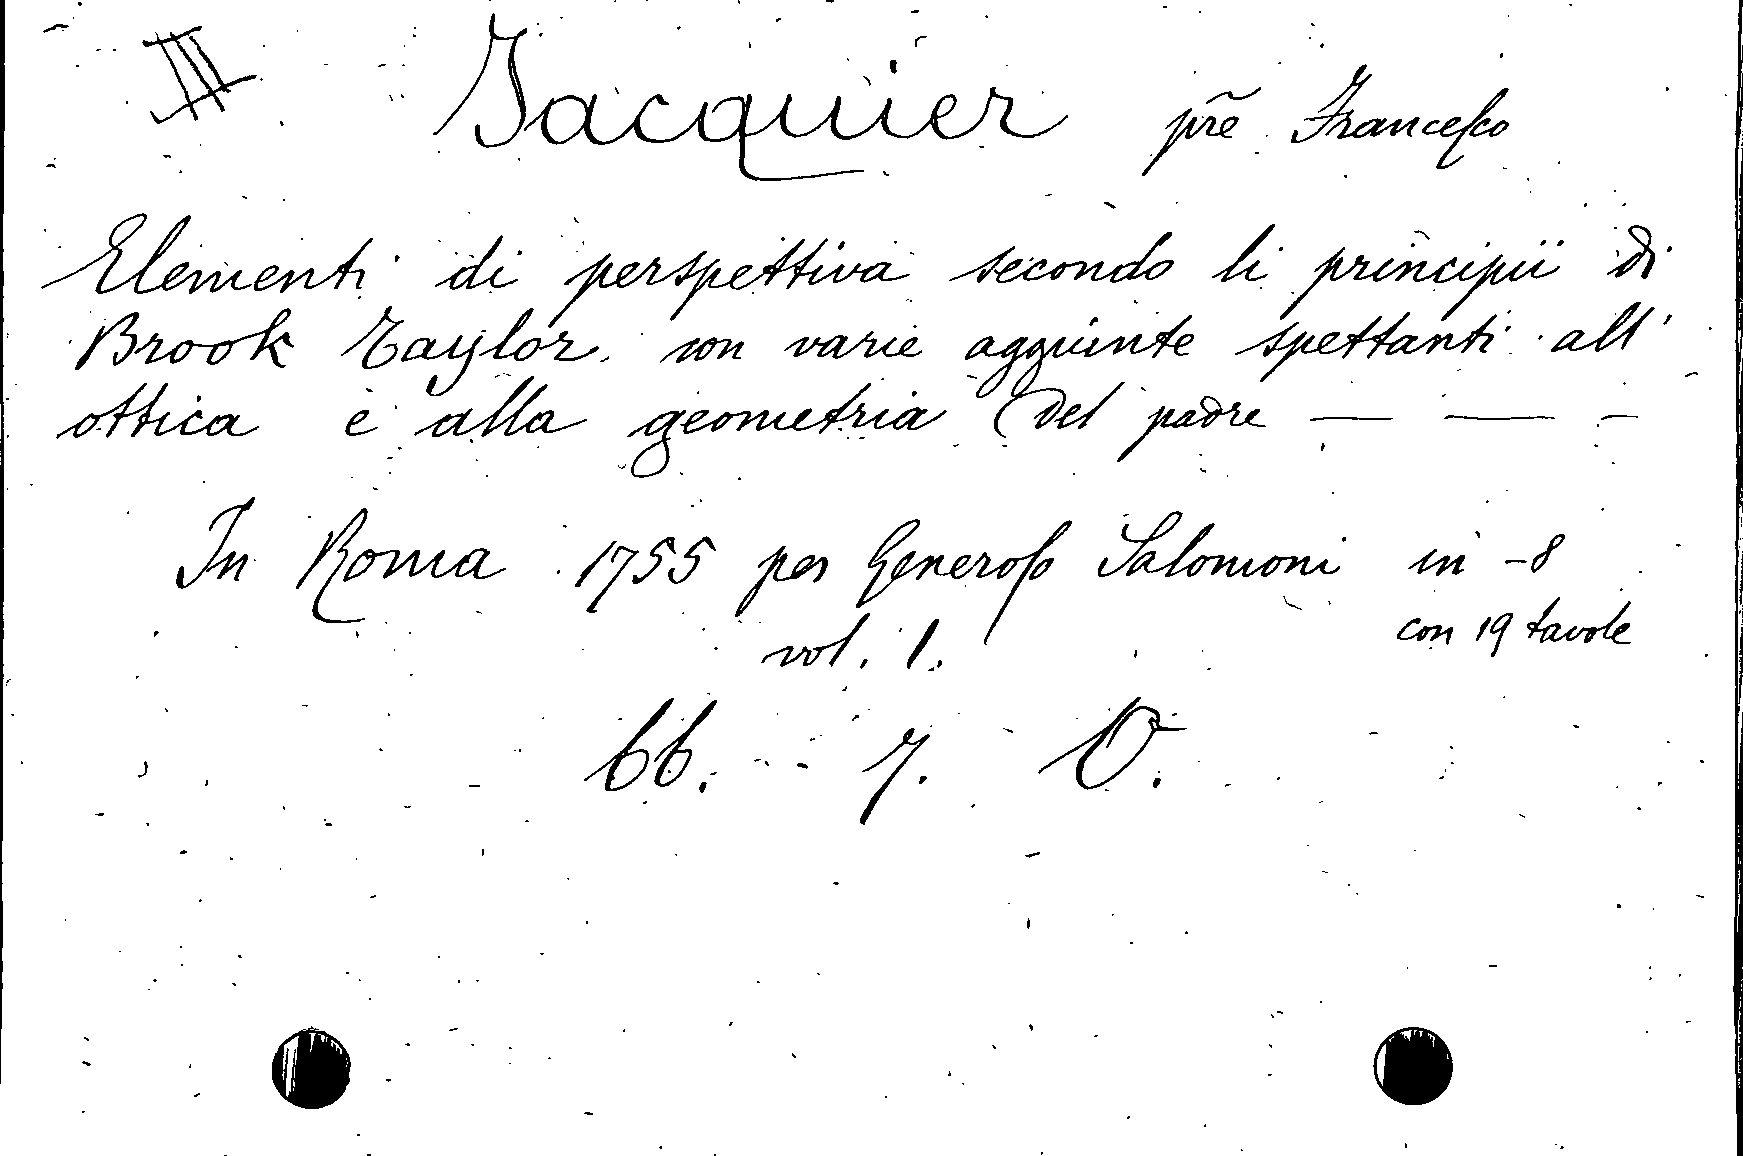 III Jacquier prẽ Franceſco
Elementi di perspettiva secondo li principii di
Brook Taylor con varie aggiunte spettanti all'
ottica e alla geometria del padre — — –
In Roma 1755 per Generoſo Salomoni in -8
con 19 tavole
vol. 1.
66. 7. O.